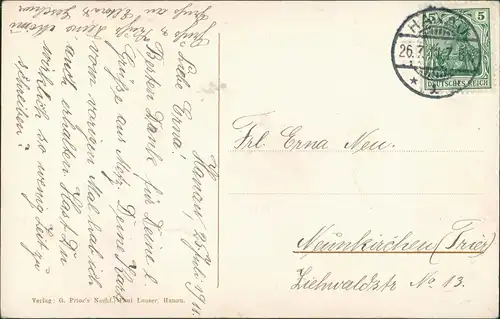 Hanau, 25. Juli 1911.
Liebe Erna!
Besten Dank für Deine l.
Grüße aus Metz. Deine Karte
vom vorigen Mal hab ich
auch erhalten. Hast Du
wirklich so wenig Zeit zu
schreiben?
Gruß u. Kuß Deine
Gruß an Eltern &
HANAU
26.7.11.
5
DEUTSCHES REICH
Frl. Erna Neu.
Neunkirchen (Trier)
Ziehwaldstr No 13.
Verlag: G. Prior's Nachf., Paul Lauser, Hanau.